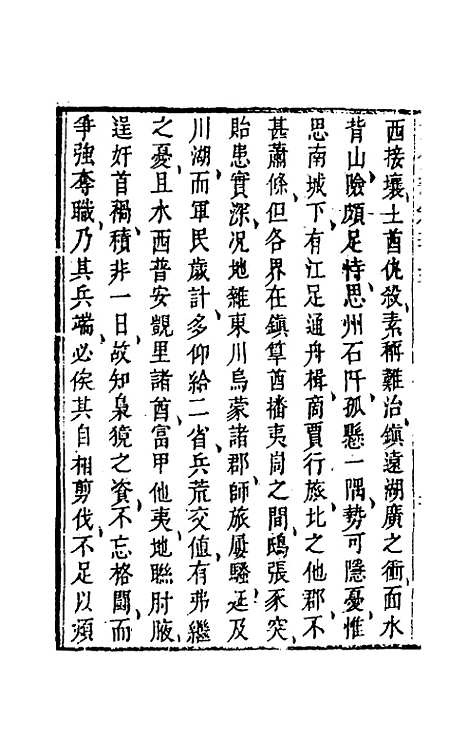 西接壤土酋仇殺素稱難治鎮遠湖廣之衝面水
背山險頗足恃思州石阡孤懸一隅勢可隱憂惟
思南城下有江足通舟楫商賈行旅比之他郡不
甚蕭條但各界在鎮筸酋播夷崗之間鴟張豕突
貽患實深况地雜東川烏蒙諸郡師旅屢騷延及
川湖而軍民歲計多仰給二省兵荒交值有弗繼
之憂且水西普安凱里諸酋富甲他夷地聯肘腋
逞奸首禍積非一日故知梟獍之資不忘格鬬而
爭強奪職乃其兵端必俟其自相剪伐不足以煩